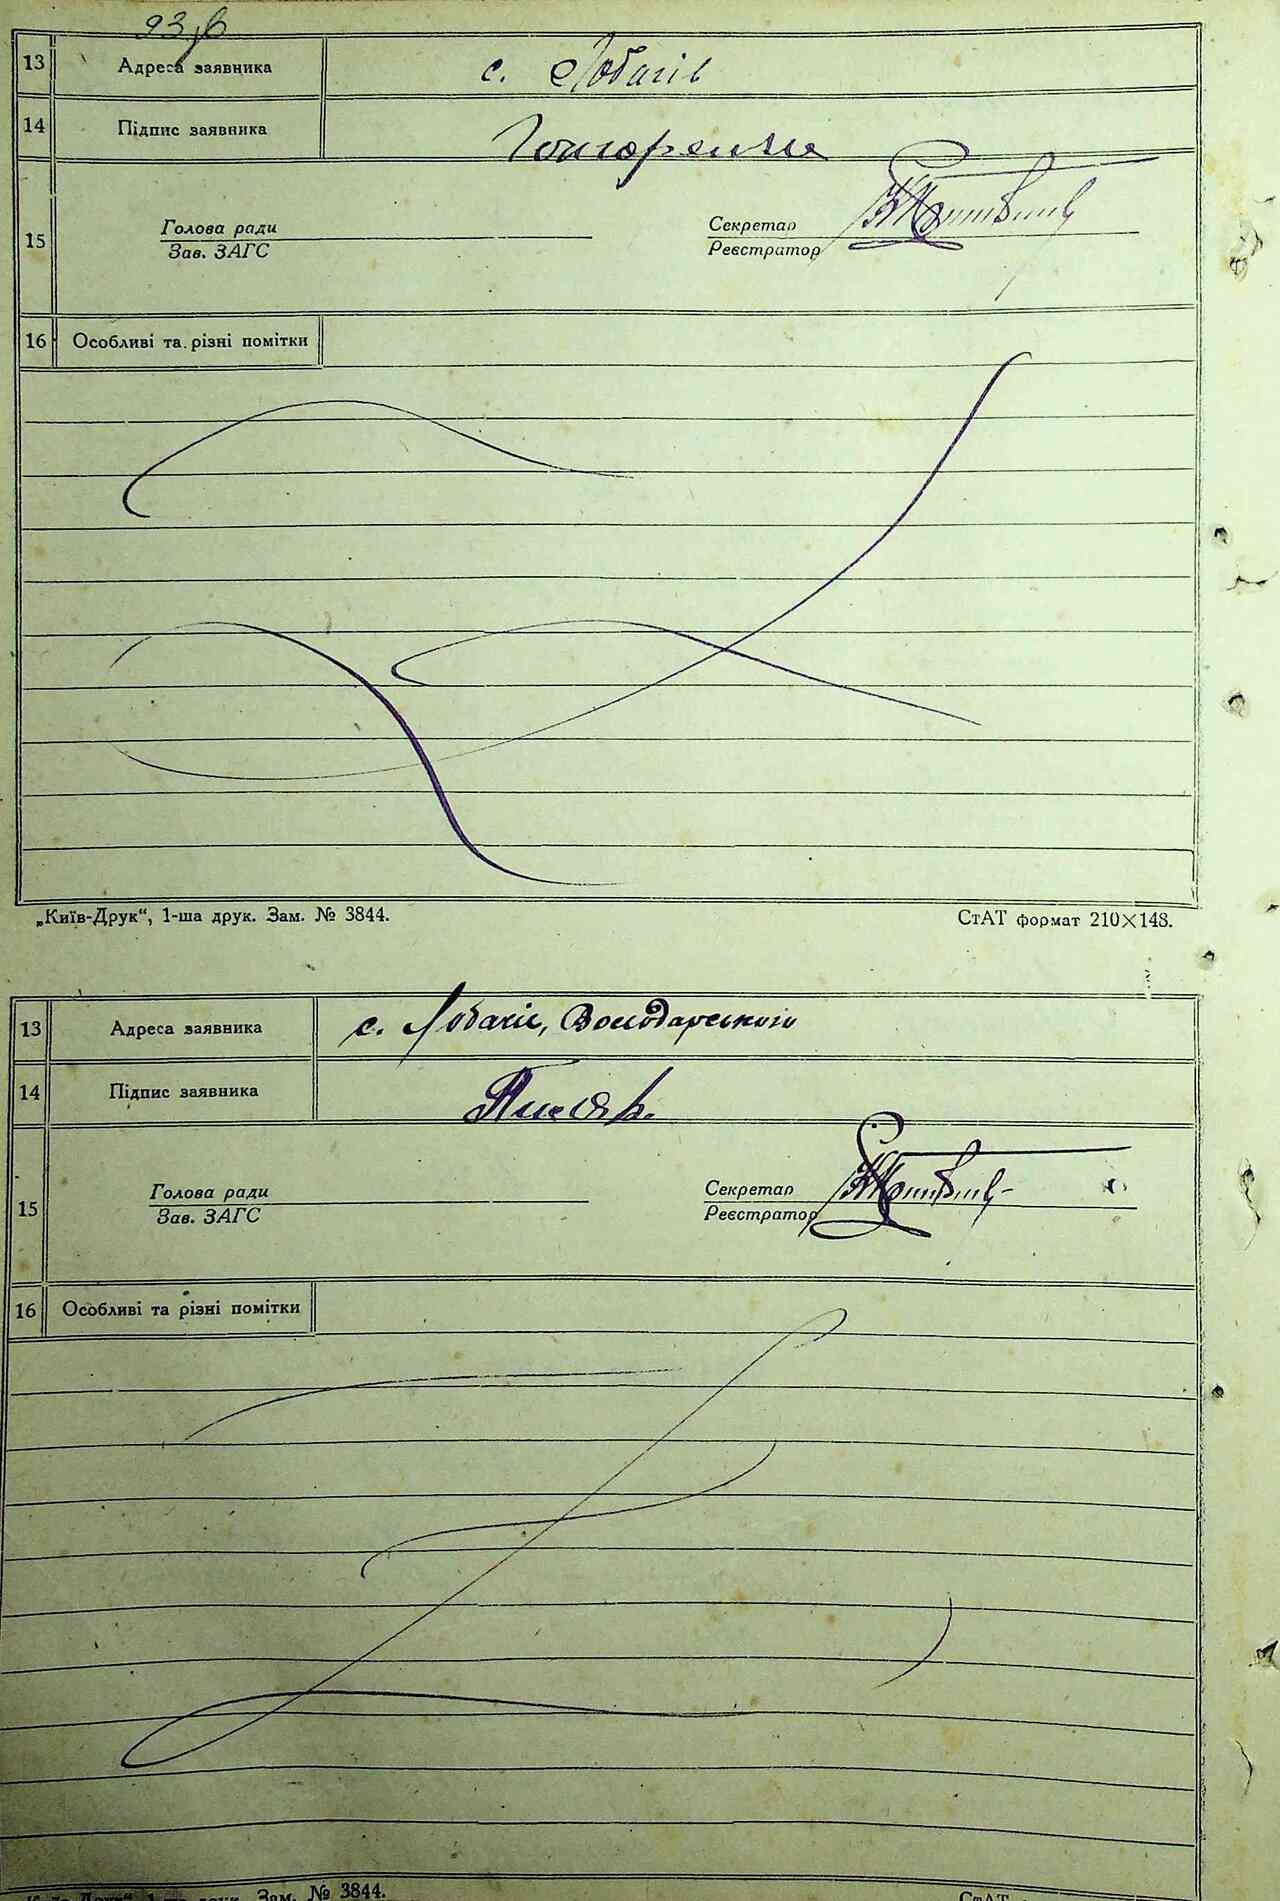 93зв
13 Адреса заявника с. Лобачів
14 Підпис заявника Гончаренко
15 Голова ради Секретар
Зав. ЗАГС Реєстратор
16 Особливі та різні помітки
„Київ-Друк“, 1-ша друк. Зам. № 3844. СтАТ формат 210×148.
13 Адреса заявника с. Лобачів, Володарського
14 Підпис заявника
15 Голова ради Секретар
Зав. ЗАГС Реєстратор
16 Особливі та різні помітки
Київ-Друк“, 1-ша друк. Зам. № 3844. СтАТ